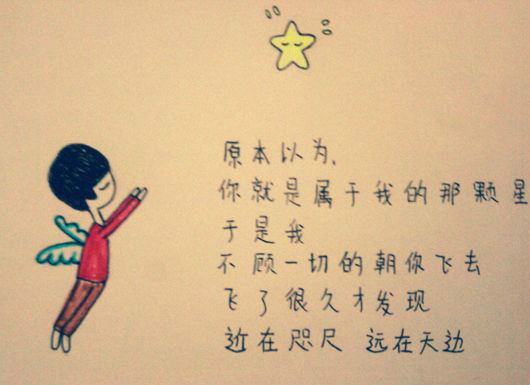 原本以为、
你就是属于我的那颗星
于是我
不顾一切的朝你飞去
飞了很久才发现
近在咫尺 远在天边